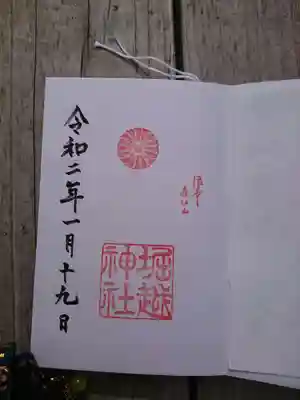 堀越
神社
令和二年一月十九日